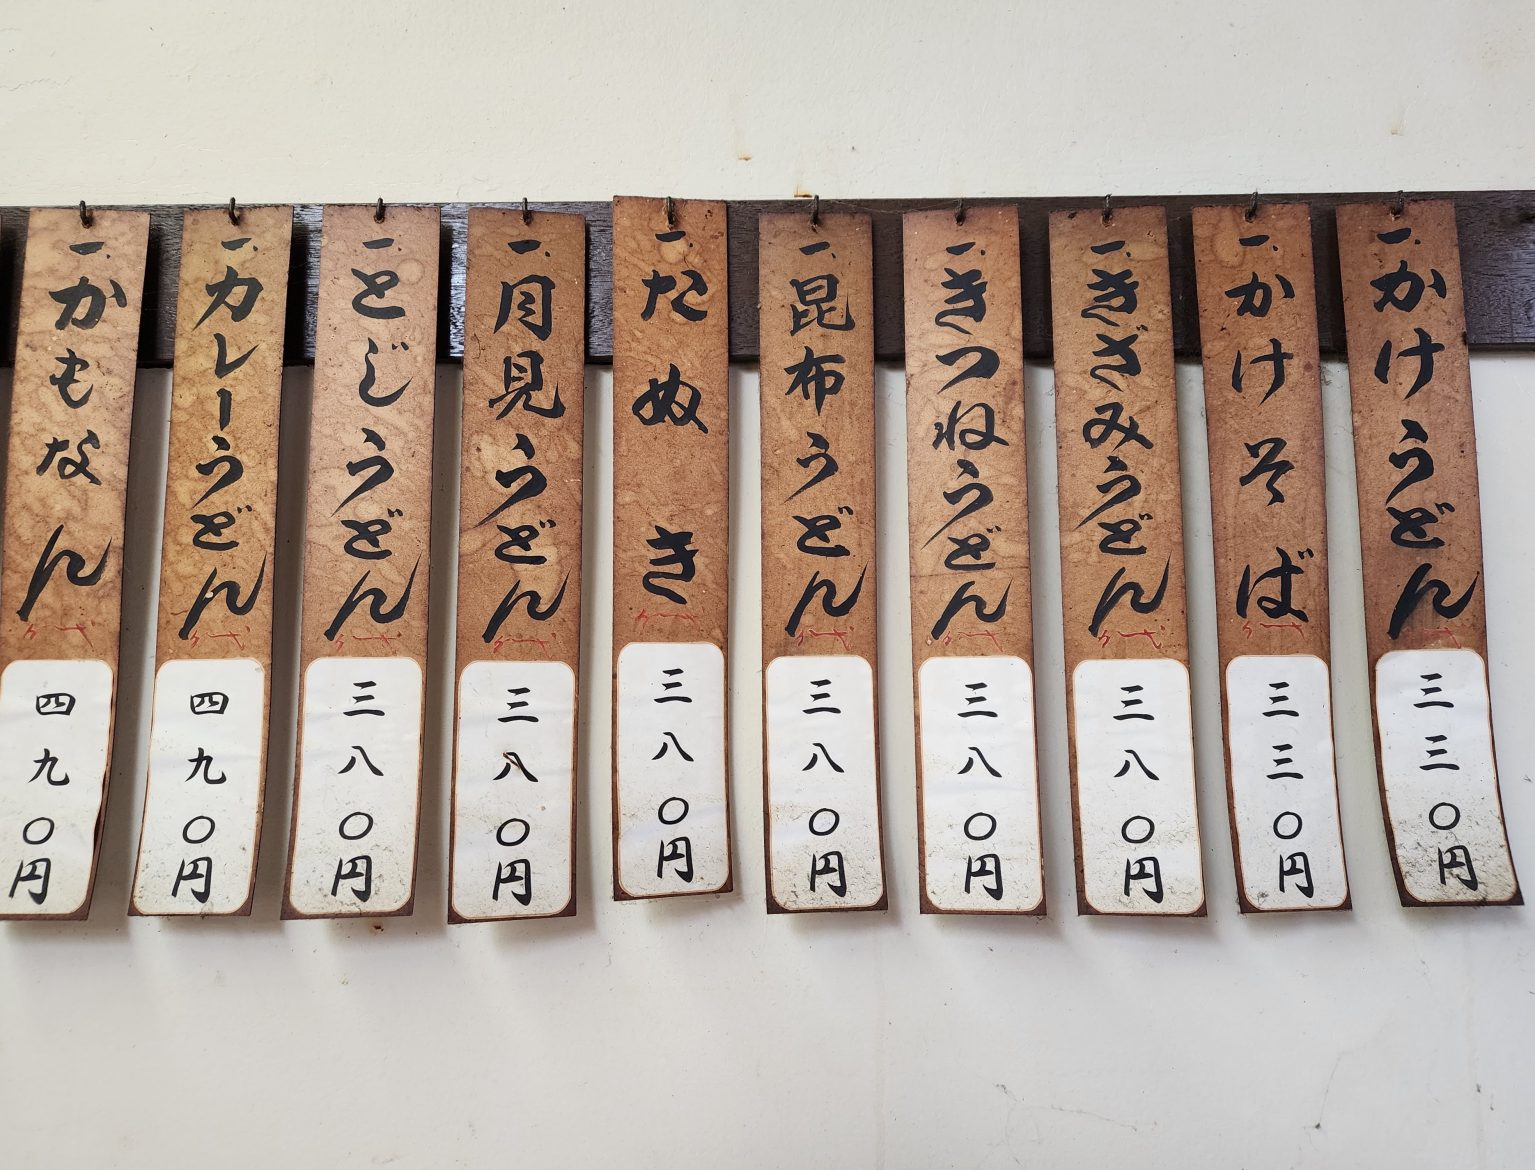 一、かけうどん
三三〇円
一、かけそば
三三〇円
一、きざみうどん
三八〇円
一、きつねうどん
三八〇円
一、昆布うどん
三八〇円
一、たぬき
三八〇円
一、月見うどん
三八〇円
一、とじうどん
三八〇円
一、カレーうどん
四九〇円
一、かもなん
四九〇円